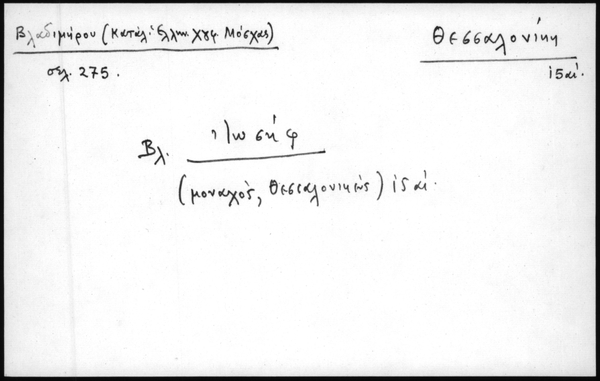 Βλαδιμήρου (Κατάλ. Ἑλλην. Χγφ. Μόσχας)
σελ. 275.
Θεσσαλονίκη
ιϛ αἰ.
Βλ. Ἰωσήφ
(μοναχὸς, Θεσσαλονικεὺς) ιϛ αἰ.